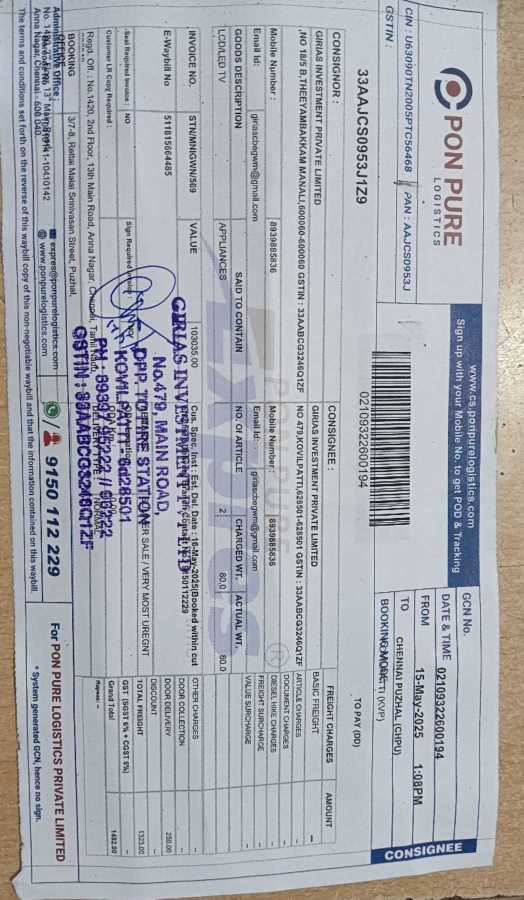 PON PURE
LOGISTICS
CIN : U63090TN2005PTC56468 PAN : AAJCS0953J
GSTIN :
33AAJCS0953J1Z9
www.cs.ponpurelogistics.com
Sign up with your Mobile No. to get POD & Tracking
02109322600194
GCN No.
02109322600194
DATE & TIME
15-May-2025 1:08PM
FROM
CHENNAI PUZHAL (CHPU)
TO
BOOKING MODE
CONSIGNEE
TO PAY (DD)
CONSIGNOR :
GIRIAS INVESTMENT PRIVATE LIMITED
,NO 18/5 B,THEEYAMBAKKAM MANALI,600060-600060 GSTIN : 33AABCG3246Q1ZF
Mobile Number : 8939885836
Email Id: giriascbegwm@gmail.com
CONSIGNEE :
GIRIAS INVESTMENT PRIVATE LIMITED
NO 479,KOVILPATTI,628501-628501 GSTIN : 33AABCG3246Q1ZF
Mobile Number : 8939885836
Email Id: giriascbegwm@gmail.com
GOODS DESCRIPTION SAID TO CONTAIN NO. OF ARTICLE CHARGED WT. ACTUAL WT.
LCD/LED TV APPLIANCES 2 80.0 80.0
INVOICE NO. STN/MNGWN/569 VALUE 103035.00
E-Waybill No 511815664485
Cus. Spec. Inst : Est. Del. Date : 16-May-2025(Booked within cut
SALE / VERY MOST UREGNT
-Seal Required Invoice : NO
Sign Required
Customer LR Copy Required :
FREIGHT CHARGES AMOUNT
BASIC FREIGHT --
ARTICLE CHARGES
DOCUMENT CHARGES
DIESEL HIKE CHARGES
FREIGHT SURCHARGE
VALUE SURCHARGE
OTHER CHARGES --
DOOR COLLECTION --
DOOR DELIVERY 250.00
DISCOUNT
TOTAL FREIGHT 1323.00
GST (SGST 6% + CGST 6%) --
Grand Total 1482.00
GIRIAS INVESTMENT PVT LTD
No.479, MAIN ROAD,
OPP. TO FIRE STATION
KOVILPATTI - 628501
GSTIN : 33AABCG3246Q1ZF
Regd. Off. : No.1420, 2nd Floor, 13th Main Road, Anna Nagar, Chennai, Tamil Nadu
BOOKING
OFFICE
3/7-8, Rettai Malai Srinivasan Street, Puzhal,
Administrative Office:
Anna Nagar, Chennai - 600 040.
expres@ponpurelogistics.com
www.ponpurelogistics.com
9150 112 229
For PON PURE LOGISTICS PRIVATE LIMITED
* System generated GCN, hence no sign.
The terms and conditions set forth on the reverse of this waybill copy of this non-negotiable waybill and that the information contained on this waybill.